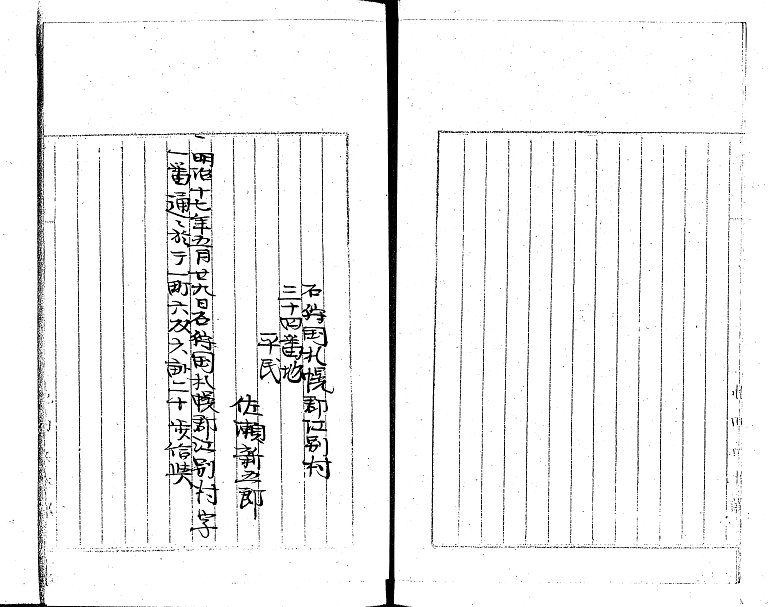 石狩国札幌郡江別村
三十四番地
平民
佐瀬新五郎
一明治十七年五月廿九日石狩国札幌郡江別村字
一番通ニ於テ一町六反六畝二十歩